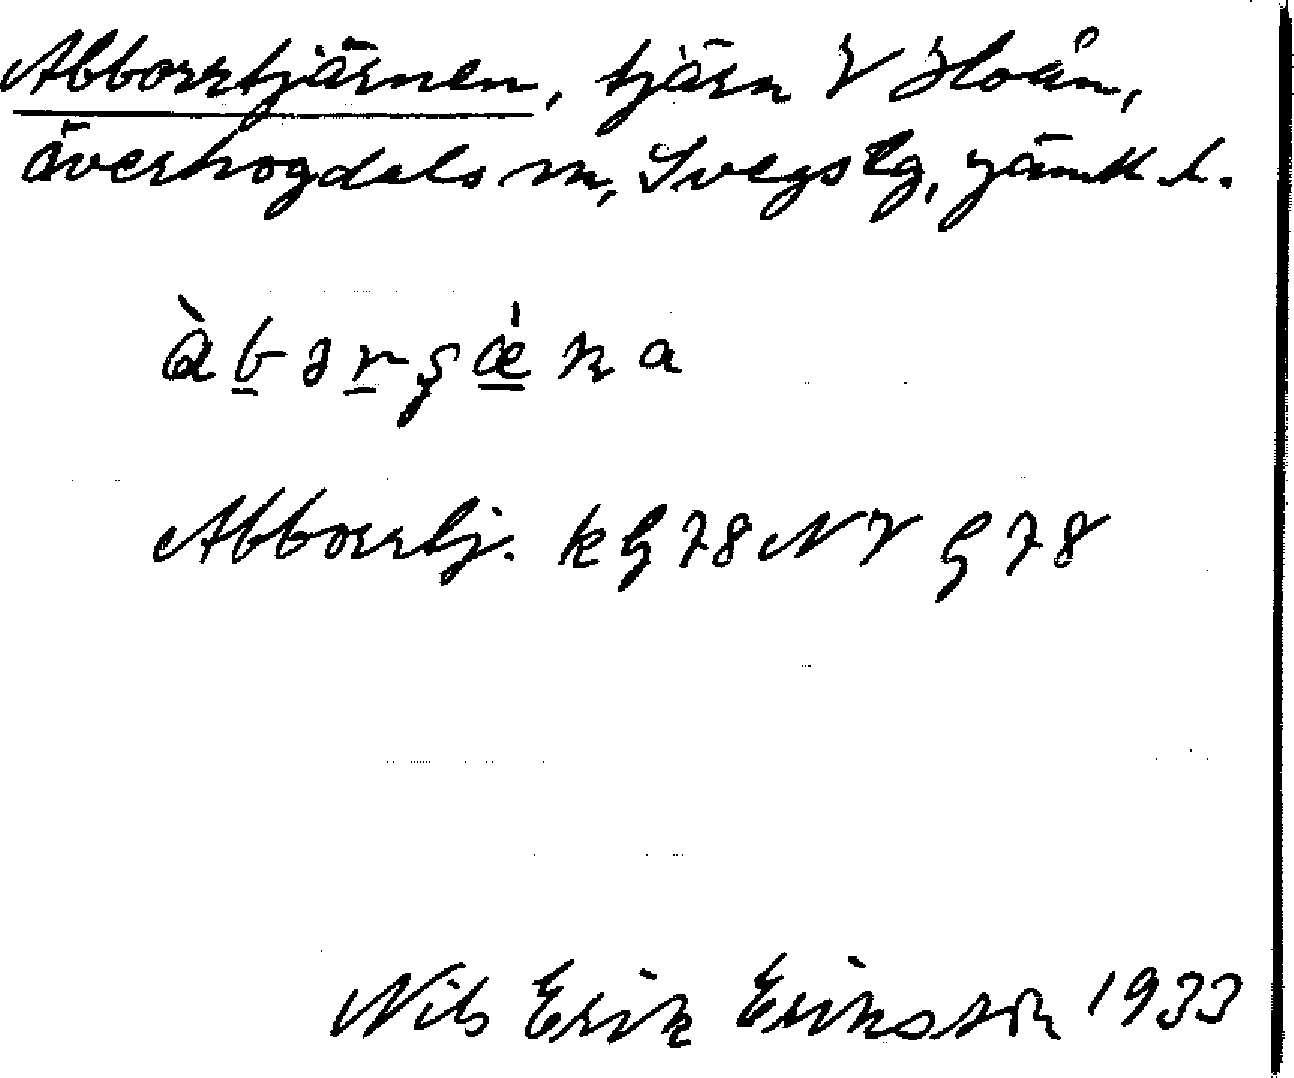 Abborrtjärnen, tjärn V Hoån,
överhogdals sn, Svegs tg, Jämtl. l.
àbərʂǽna
Abborrtj. kG 78 NV G 78
Nils Erik Eriksson 1933